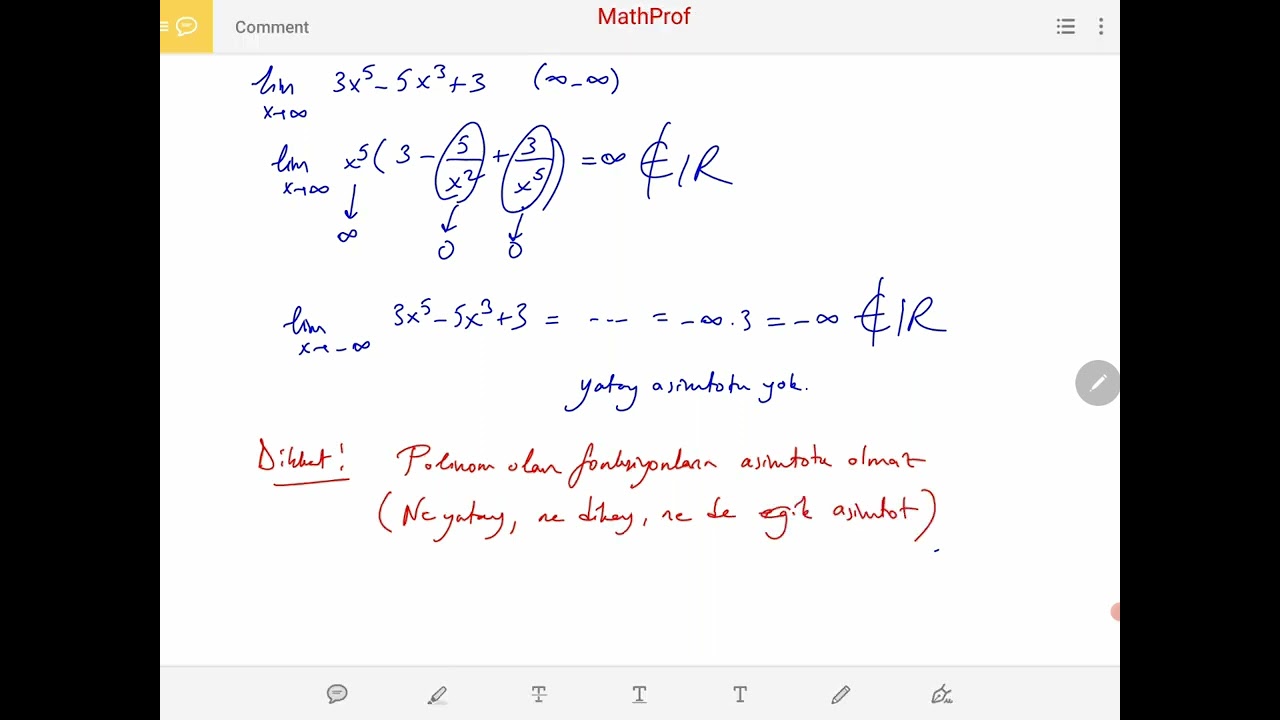 MathProf
Comment
lim x→∞ 3x⁵ - 5x³ + 3 (∞ - ∞)
lim x→∞ x⁵(3 - 5/x² + 3/x⁵) = ∞ ∉ IR
↓ ↓ ↓
∞ 0 0
lim x→-∞ 3x⁵ - 5x³ + 3 = --- = -∞ . 3 = -∞ ∉ IR
yatay asimtotu yok.
Dikkat! Polinom olan fonksiyonların asimtotu olmaz
(Ne yatay, ne dikey, ne de egik asimtot)
T T T